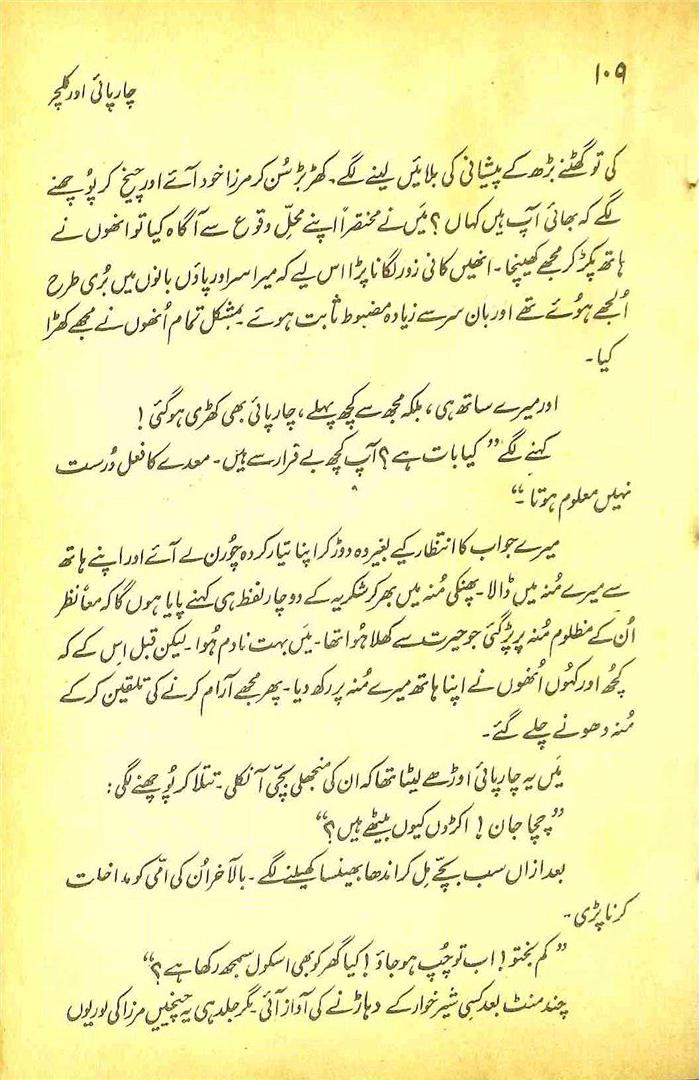 ۱۰۹
چارپائی اور کلچر
کی تو گھٹنے بڑھ کے پیشانی کی بلائیں لینے لگے۔ کھڑبڑ سُن کر مرزا خود آئے اور چیخ کر پُوچھنے
لگے کہ بھائی آپ ہیں کہاں؟ مَیں نے مختصراً اپنے محلِّ وقوع سے آگاہ کیا تو انھوں نے
ہاتھ پکڑ کر مجھے کھینچا۔ انھیں کافی زور لگانا پڑا اس لیے کہ میرا سر اور پاؤں بانوں میں بُری طرح
اُلجھے ہوُئے تھے اور بان سر سے زیادہ مضبوط ثابت ہوئے۔ بمشکل تمام اُنھوں نے مجھے کھڑا
کیا۔
اور میرے ساتھ ہی، بلکہ مجھ سے کچھ پہلے، چارپائی بھی کھڑی ہو گئی!
کہنے لگے ”کیا بات ہے؟ آپ کچھ بے قرار سے ہیں۔ معدے کا فعل دُرست
نہیں معلوم ہوتا۔“
میرے جواب کا انتظار کیے بغیر وہ دوڑ کر اپنا تیار کردہ چُورن لے آئے اور اپنے ہاتھ
سے میرے مُنہ میں ڈالا۔ پھنکی مُنہ میں بھر کر شکریہ کے دو چار لفظ ہی کہنے پایا ہوں گا کہ معاً نظر
اُن کے مظلوم مُنہ پر پڑ گئی جو حیرت سے کھلا ہُوا تھا۔ مَیں بہت نادم ہُوا۔ لیکن قبل اِس کے کہ
کچُھ اور کہُوں اُنھوں نے اپنا ہاتھ میرے مُنہ پر رکھ دیا۔ پھر مجھے آرام کرنے کی تلقین کر کے
مُنہ دھونے چلے گئے۔
مَیں یہ چارپائی اوڑھے لیٹا تھا کہ ان کی منجھلی بچّی آ نکلی۔ تتلا کر پُوچھنے لگی:
”چچا جان! اکڑوں کیوں بیٹھے ہیں؟“
بعد ازاں سب بچّے مل کر اندھا بھینسا کھیلنے لگے۔ بالآخر اُن کی امّی کو مداخلت
کرنا پڑی۔
”کم بختو! اب تو چُپ ہو جاؤ! کیا گھر کو بھی اسکول سمجھ رکھا ہے؟“
چند منٹ بعد کسی شیر خوار کے دہاڑنے کی آواز آئی۔ مگر جلد ہی یہ چیخیں مرزا کی لوریوں